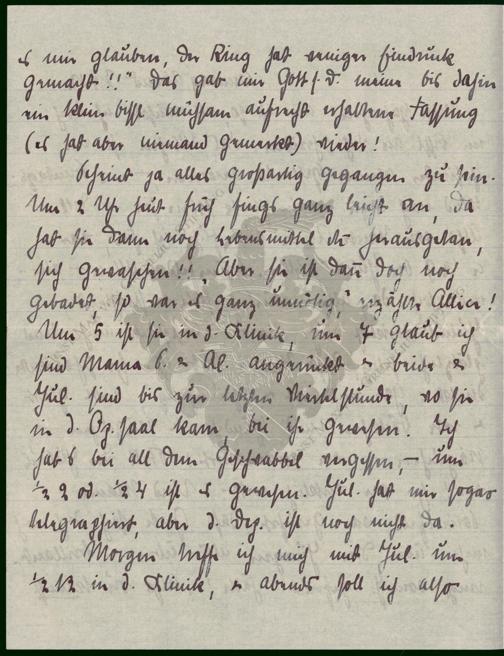 es mir glauben, der Ring hat weniger Eindruck
gemacht!!" Das gab mir Gott s. D. meine bis dahin
ein klein bissl mühsam aufrecht erhaltene Fassung
(es hat aber niemand gemerkt) wieder!
Scheint ja alles großartig gegangen zu sein.
Um 2 Uhr heut früh fings ganz leicht an, da
hat sie dann noch Lebensmittel etc herausgetan,
sich gewaschen!!, "Aber sie ist dañ doch noch
gebadet, so war es ganz unnötig," erzählte Allice!
Um 5 ist sie in d. Klinik, um 7 glaub ich
sind Mama 6. & Al. angerückt & beide &
Jul. sind bis zur letzten Viertelstunde, wo sie
in d. Op.saal kam, bei ihr gewesen. Ich
hab's bei all dem Geschwabbel vergessen, – um
½ 2 od. ½ 4 ist es gewesen. Jul. hat mir sogar
telegraphiert, aber d. Dep. ist noch nicht da.
Morgen treffe ich mich mit Jul. um
½ 12 in d. Klinik, & abends soll ich also